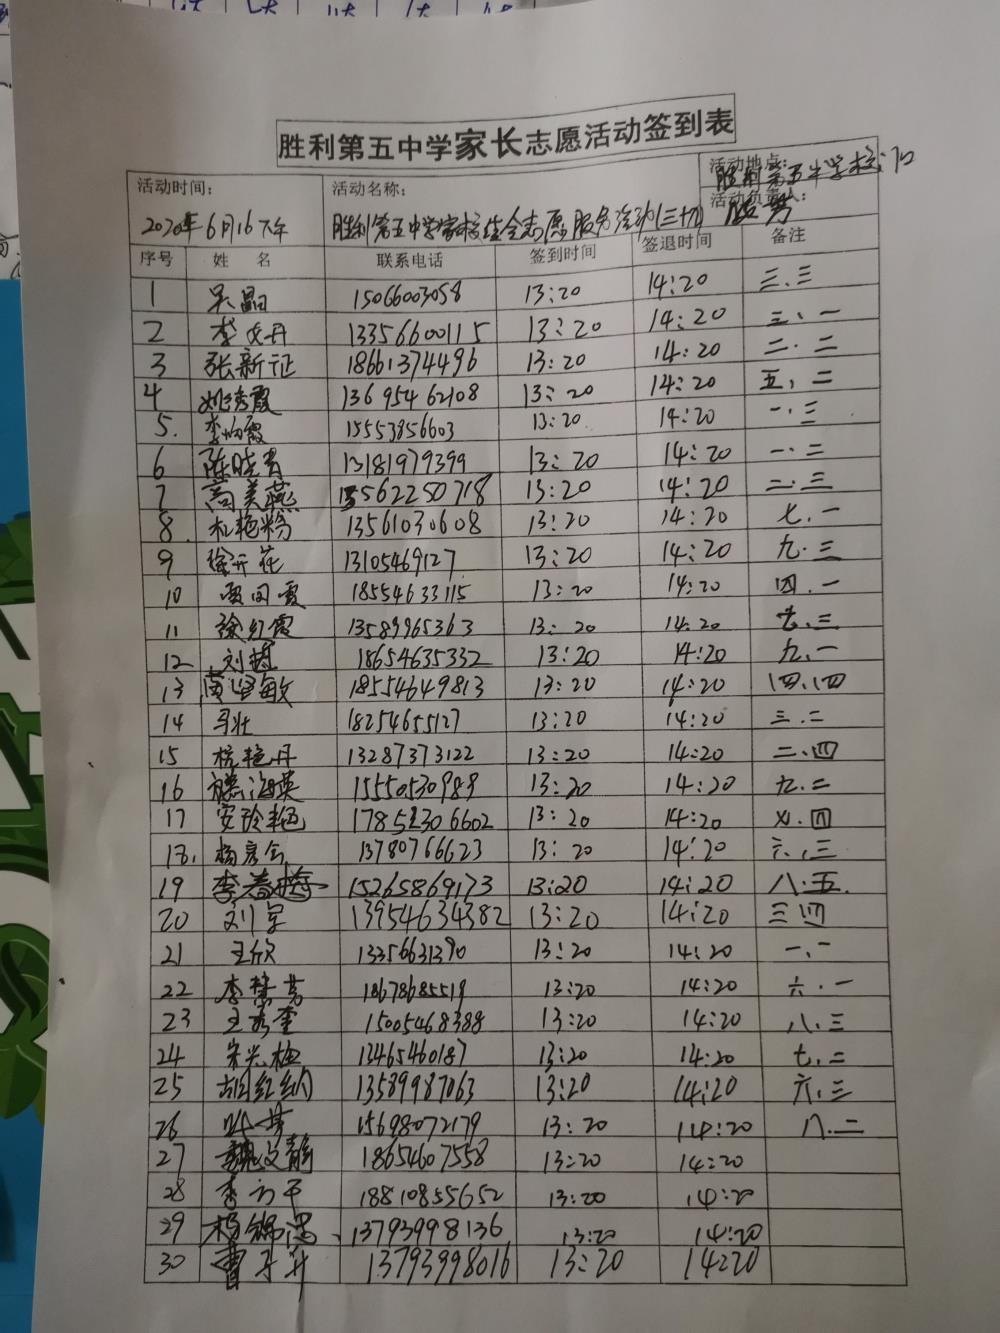 胜利第五中学家长志愿活动签到表
活动时间: 活动名称: 活动地点:
胜利第五中学校门口
2020年6月16下午 胜利第五中学家校生全志愿服务活动(三切) 活动负责人:
序号 姓名 联系电话 签到时间 签退时间 备注
1 吴晶 15066003058 13:20 14:20 三.三
2 李文丹 13356600115 13:20 14:20 三、一
3 张新征 18661374496 13:20 14:20 二.二
4 姚秀霞 13695462108 13:20 14:20 五,二
5. 李均霞 15553856603 13:20 14:20 一.三
6 陈晓青 13181979399 13:20 14:20 一.二
7 高美燕 15562250718 13:20 14:20 二.三
8. 杜艳粉 13561030608 13:20 14:20 七.一
9 徐开花 13105469127 13:20 14:20 九.三
10 18554633115 13:20 14:20 四.一
11 徐红霞 13589965363 13:20 14:20 七.三
12 刘 18654635332 13:20 14:20 九.一
13 敏 18554649813 13:20 14:20 四.四
14 马壮 18254655127 13:20 14:20 三.二
15 杨艳丹 13287373122 13:20 14:20 二.四
16 滕海英 15550530989 13:20 14:20 九.二
17 安玲艳 17852306602 13:20 14:20 七.四
18. 杨彦会 13780766623 13:20 14:20 六.三
19 李春婷 15265869173 13:20 14:20 八.五.
20 刘军 13954634382 13:20 14:20 三四
21 王欣 13356631390 13:20 14:20 一.一
22 李慧芳 18678685519 13:20 14:20 六.一
23 王秀奎 15005468388 13:20 14:20 八.三
24 宋兴梅 13465460187 13:20 14:20 七.二
25 胡红纳 13589987063 13:20 14:20 六.三
26 叶芳 15698072179 13:20 14:20 八.二
27 魏文静 18654607558 13:20 14:20
28 李方平 18810855652 13:20 14:20
29 杨锦 13793998136 13:20 14:20
30 曹子升 13793998016 13:20 14:20